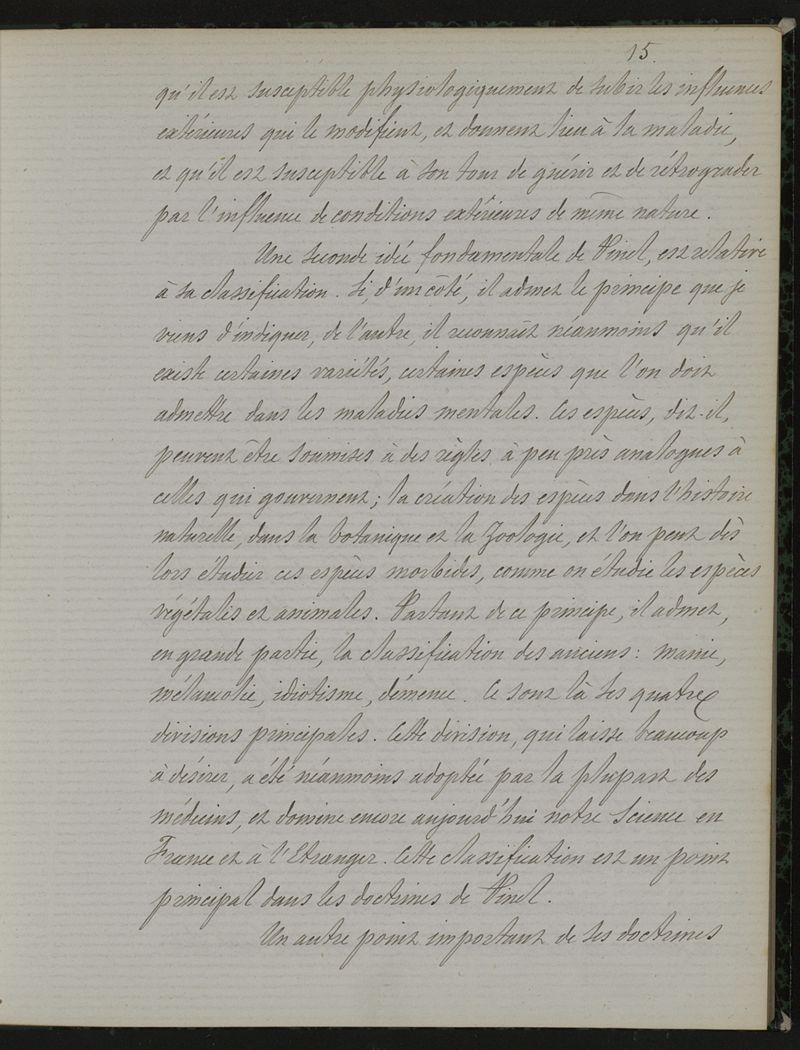 15.
qu'il est susceptible physiologiquement de subir les influences
extérieures qui le modifient, et donnent lieu à la maladie,
et qu'il est susceptible à son tour de guérir et de rétrograder
par l'influence de conditions extérieures de même nature.
Une seconde idée fondamentale de Pinel, est relative
à sa classification. Si, d'un côté, il admet le principe que je
viens d'indiquer, de l'autre, il reconnaît néanmoins qu'il
existe certaines variétés, certaines espèces que l'on doit
admettre dans les maladies mentales. Ces espèces, dit-il,
peuvent être soumises à des règles à peu près analogues à
celles qui gouvernent; la création des espèces dans l'histoire
naturelle, dans la botanique et la Zoologie, et l'on peut dès
lors étudier ces espèces morbides, comme on étudie les espèces
végétales et animales. Partant de ce principe, il admet,
en grande partie, la classification des anciens: manie,
mélancolie, idiotisme, démence. Ce sont là ses quatre
divisions principales. Cette division, qui laisse beaucoup
à désirer, a été néanmoins adoptée par la plupart des
médecins, et domine encore aujourd'hui notre Science en
France et à l'Etranger. Cette classification est un point
principal dans les doctrines de Pinel.
Un autre point important de ses doctrines